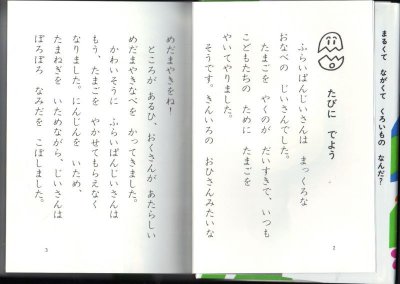 まるくて ながくて くろいもの なんだ?
たびに でよう
ふらいぱんじいさんは まっくろな
おなべの じいさんでした。
たまごを やくのが だいすきで、いつも
こどもたちの ために たまごを
やいてやりました。
そうです。きんいろの おひさんみたいな
2
めだまやきをね!
ところが あるひ、おくさんが あたらしい
めだまやきなべを かってきました。
かわいそうに ふらいぱんじいさんは
もう、たまごを やかせてもらえなく
なりました。にんじんを いため、
たまねぎを いためながら、じいさんは
ぽろぽろ なみだを こぼしました。
3